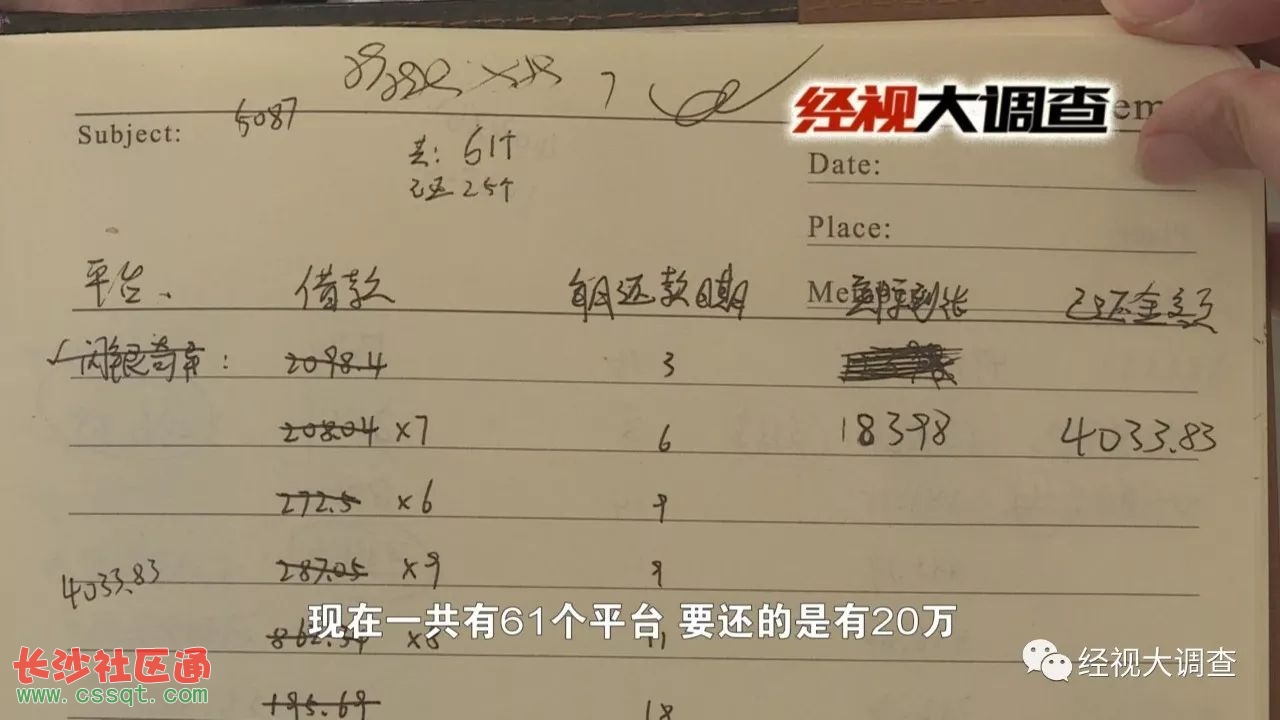 经视大调查
5087
Subject:
共：61个
已还25个
Date:
Place:
平台、 借款 每月还款日期 到账 已还金额
✓闪银奇异： 2098.4 3
208.04 ×7 6 18398 4033.83
272.5 ×6 9
287.05 ×9 9
4033.83
现在一共有61个平台 要还的是有20万
862.34 ×8 11
195.69 18
长沙社区通
www.cssqt.com
经视大调查